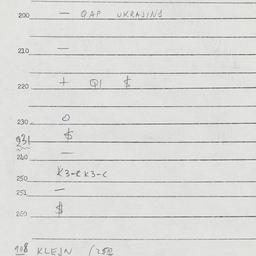 200 — QAP UKRAJINS
210 —
220 + Q1 $
230 O
231 $
240 —
250 K3-R K3-C
251 —
260 $
408 KLEJN /250